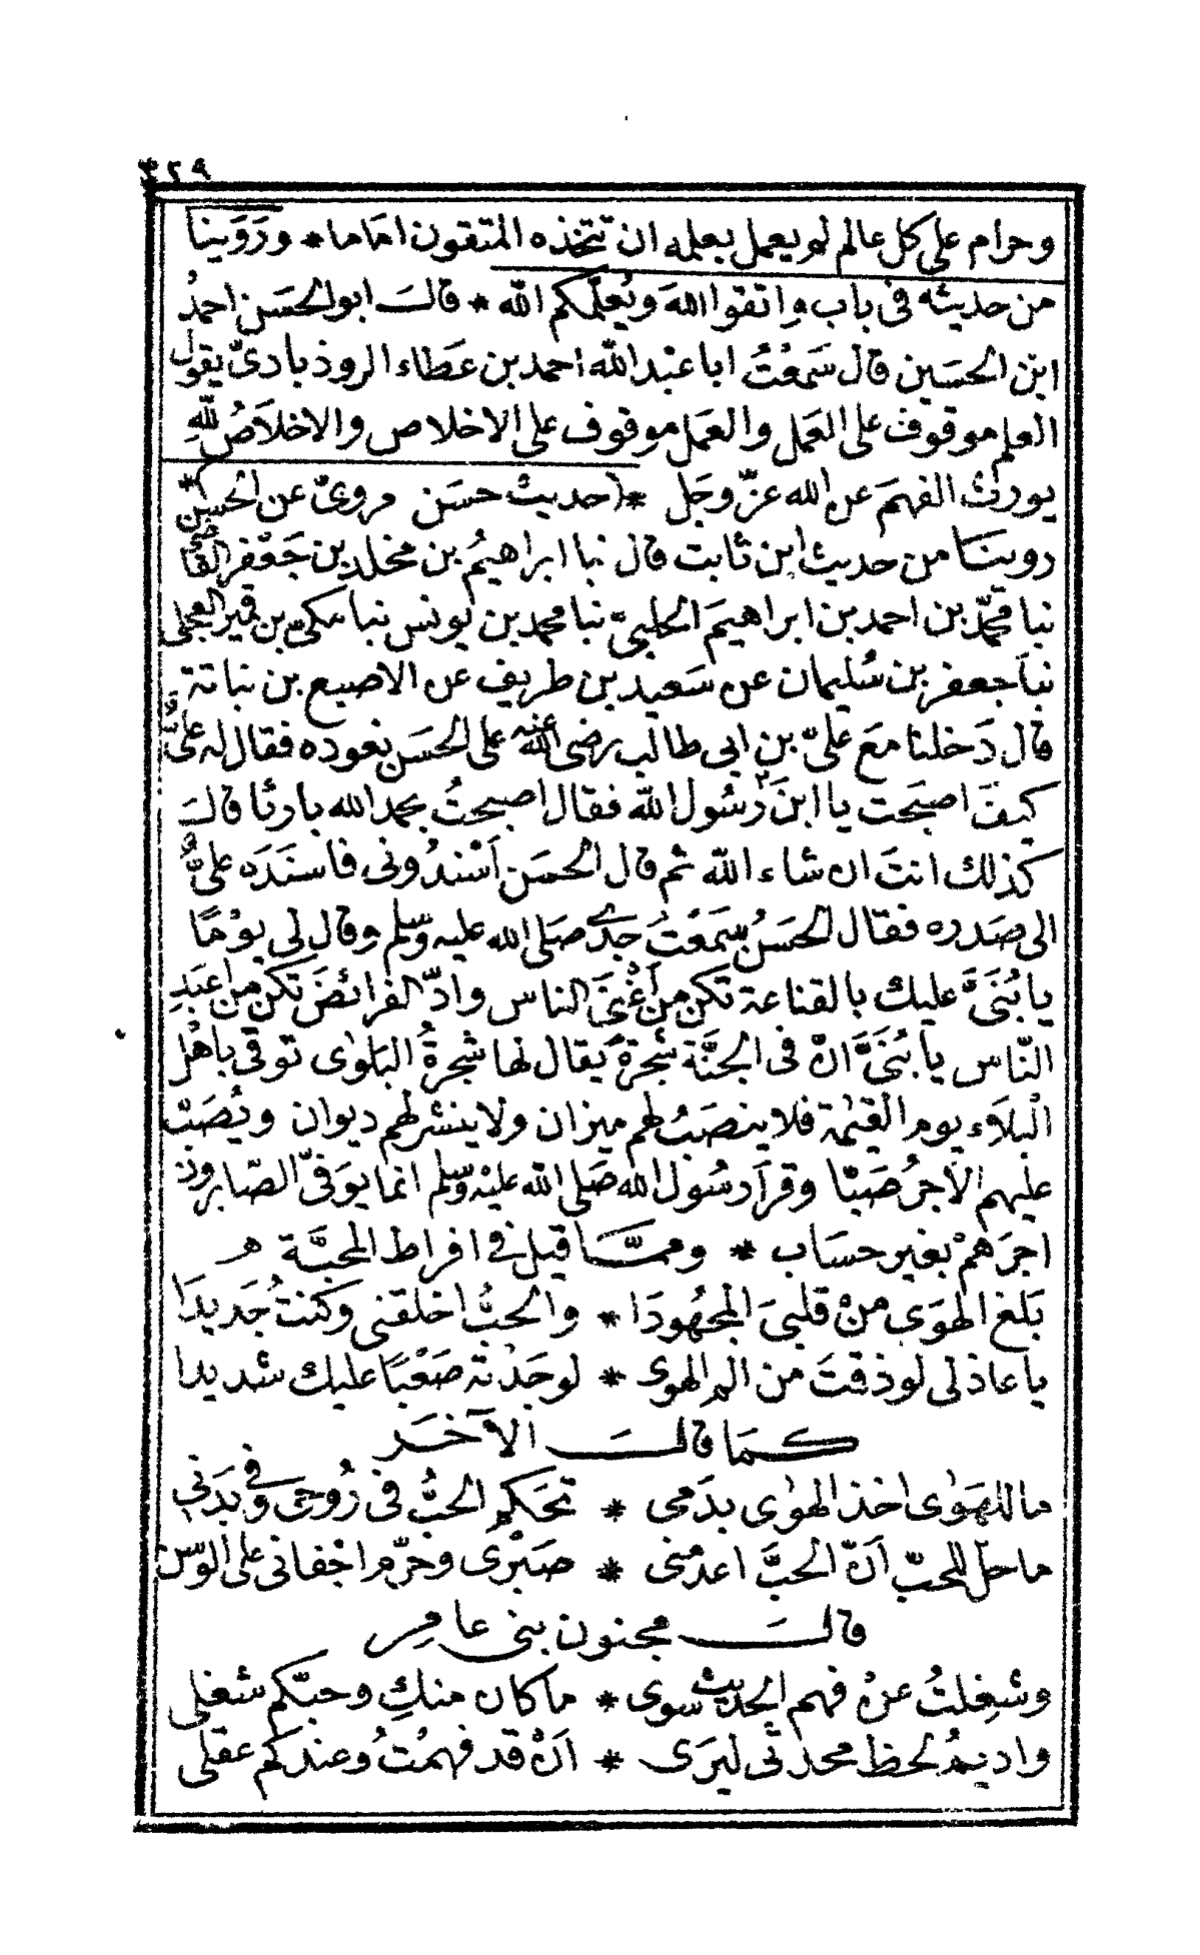 ٣٢٩
وحرام على كل عالم لم يعمل بعلمه ان تتخذه المتقون امَاما * ورَوَينا
من حديثه فى باب واتقوا اللهَ ويُعلّمكم الله * قالَ ابو الحَسَن احمدُ
ابن الحسَين قال سَمعْتُ ابا عبْد الله احمد بن عَطاء الروذبادىّ يقول
العلم موقوف على العَمل والعمَل موقوف على الاخلاص والاخلَاصُ للهِ
يورثُ الفهمَ عن الله عزّ وجَل * (حديث حسَن مروىّ عن الحسن *
روينَا من حديث ابن ثابت قال نبا ابراهيمُ بن مخلد بن جَعْفر القاضى
نبا محمّد بن احمد بن ابراهيمَ الحليىّ نبا محمد بن يونس نبا مكىّ بن قمير العجلى
نبَا جعفر بن سُليمان عن سَعيد بن طريف عن الاصبع بن نباتة
قال دَخلنا مَع علىّ بن ابى طالب رضى الله عنه على الحسَن نعوده فقال له علىٌّ
كيفَ اصبَحت يا ابنَ رَسُول الله فقال اصبحتُ بحمد الله بارئا قالَ
كذلك انتَ ان شاء الله ثم قال الحسَن اَسْندُونى فاسنَدَه علىٌّ
الى صَدره فقال الحسَنُ سَمعْتُ جَدّى صَلى الله عليه وسَلم وقال لى يوْمًا
يا بُنَىَّ عليك بالقناعة تكن من اَغْنىَ الناس وادّ الفرائضَ تكن من اعبَدِ
النّاس يا بُنَىَّ انّ فى الجنَّة شجرَة يَقال لها شجرةُ البَلوٰى توقى باهْل
الْبلآء يوم القيٰمة فلا ينصَبُ لهم ميزان ولا ينشر لهم ديوان ويُصَبّ
عليهم الاَجرُ صَبّا وقرآ رسُول الله صَلى الله عليْه وسَلم انما يوَفىّ الصّابرون
اجرَهمْ بغير حسَاب * وممّا قيل فى افراط المحبَّة هـ
بَلغ الهوَى منْ قلبىَ المجهُودَا * والحبُّ اخلقنى وكنتُ جَديدَا
يا عاذلى لو ذقتَ من الم الهوى * لوجَدْته صَعْبًا عليك شديدا
كمَا قالَ الآخَر
ما للهوٰى اخذ الهوٰى بدَمى * تحَكم الحبُّ فى رُوحى وفى بدَنى
ما حلّ للحبّ اَنّ الحبَّ اعدمنى * صَبْرى وحرّم اجفانى على الوسَن
قالَ مجنون بنى عامر
وشغِلتُ عنْ فهم الحديث سوى * ما كان منكِ وحبّكم شغلى
واديمُ لحظ محدّثى ليرَى * اَنْ قد فهمْتُ وعندكم عقلى